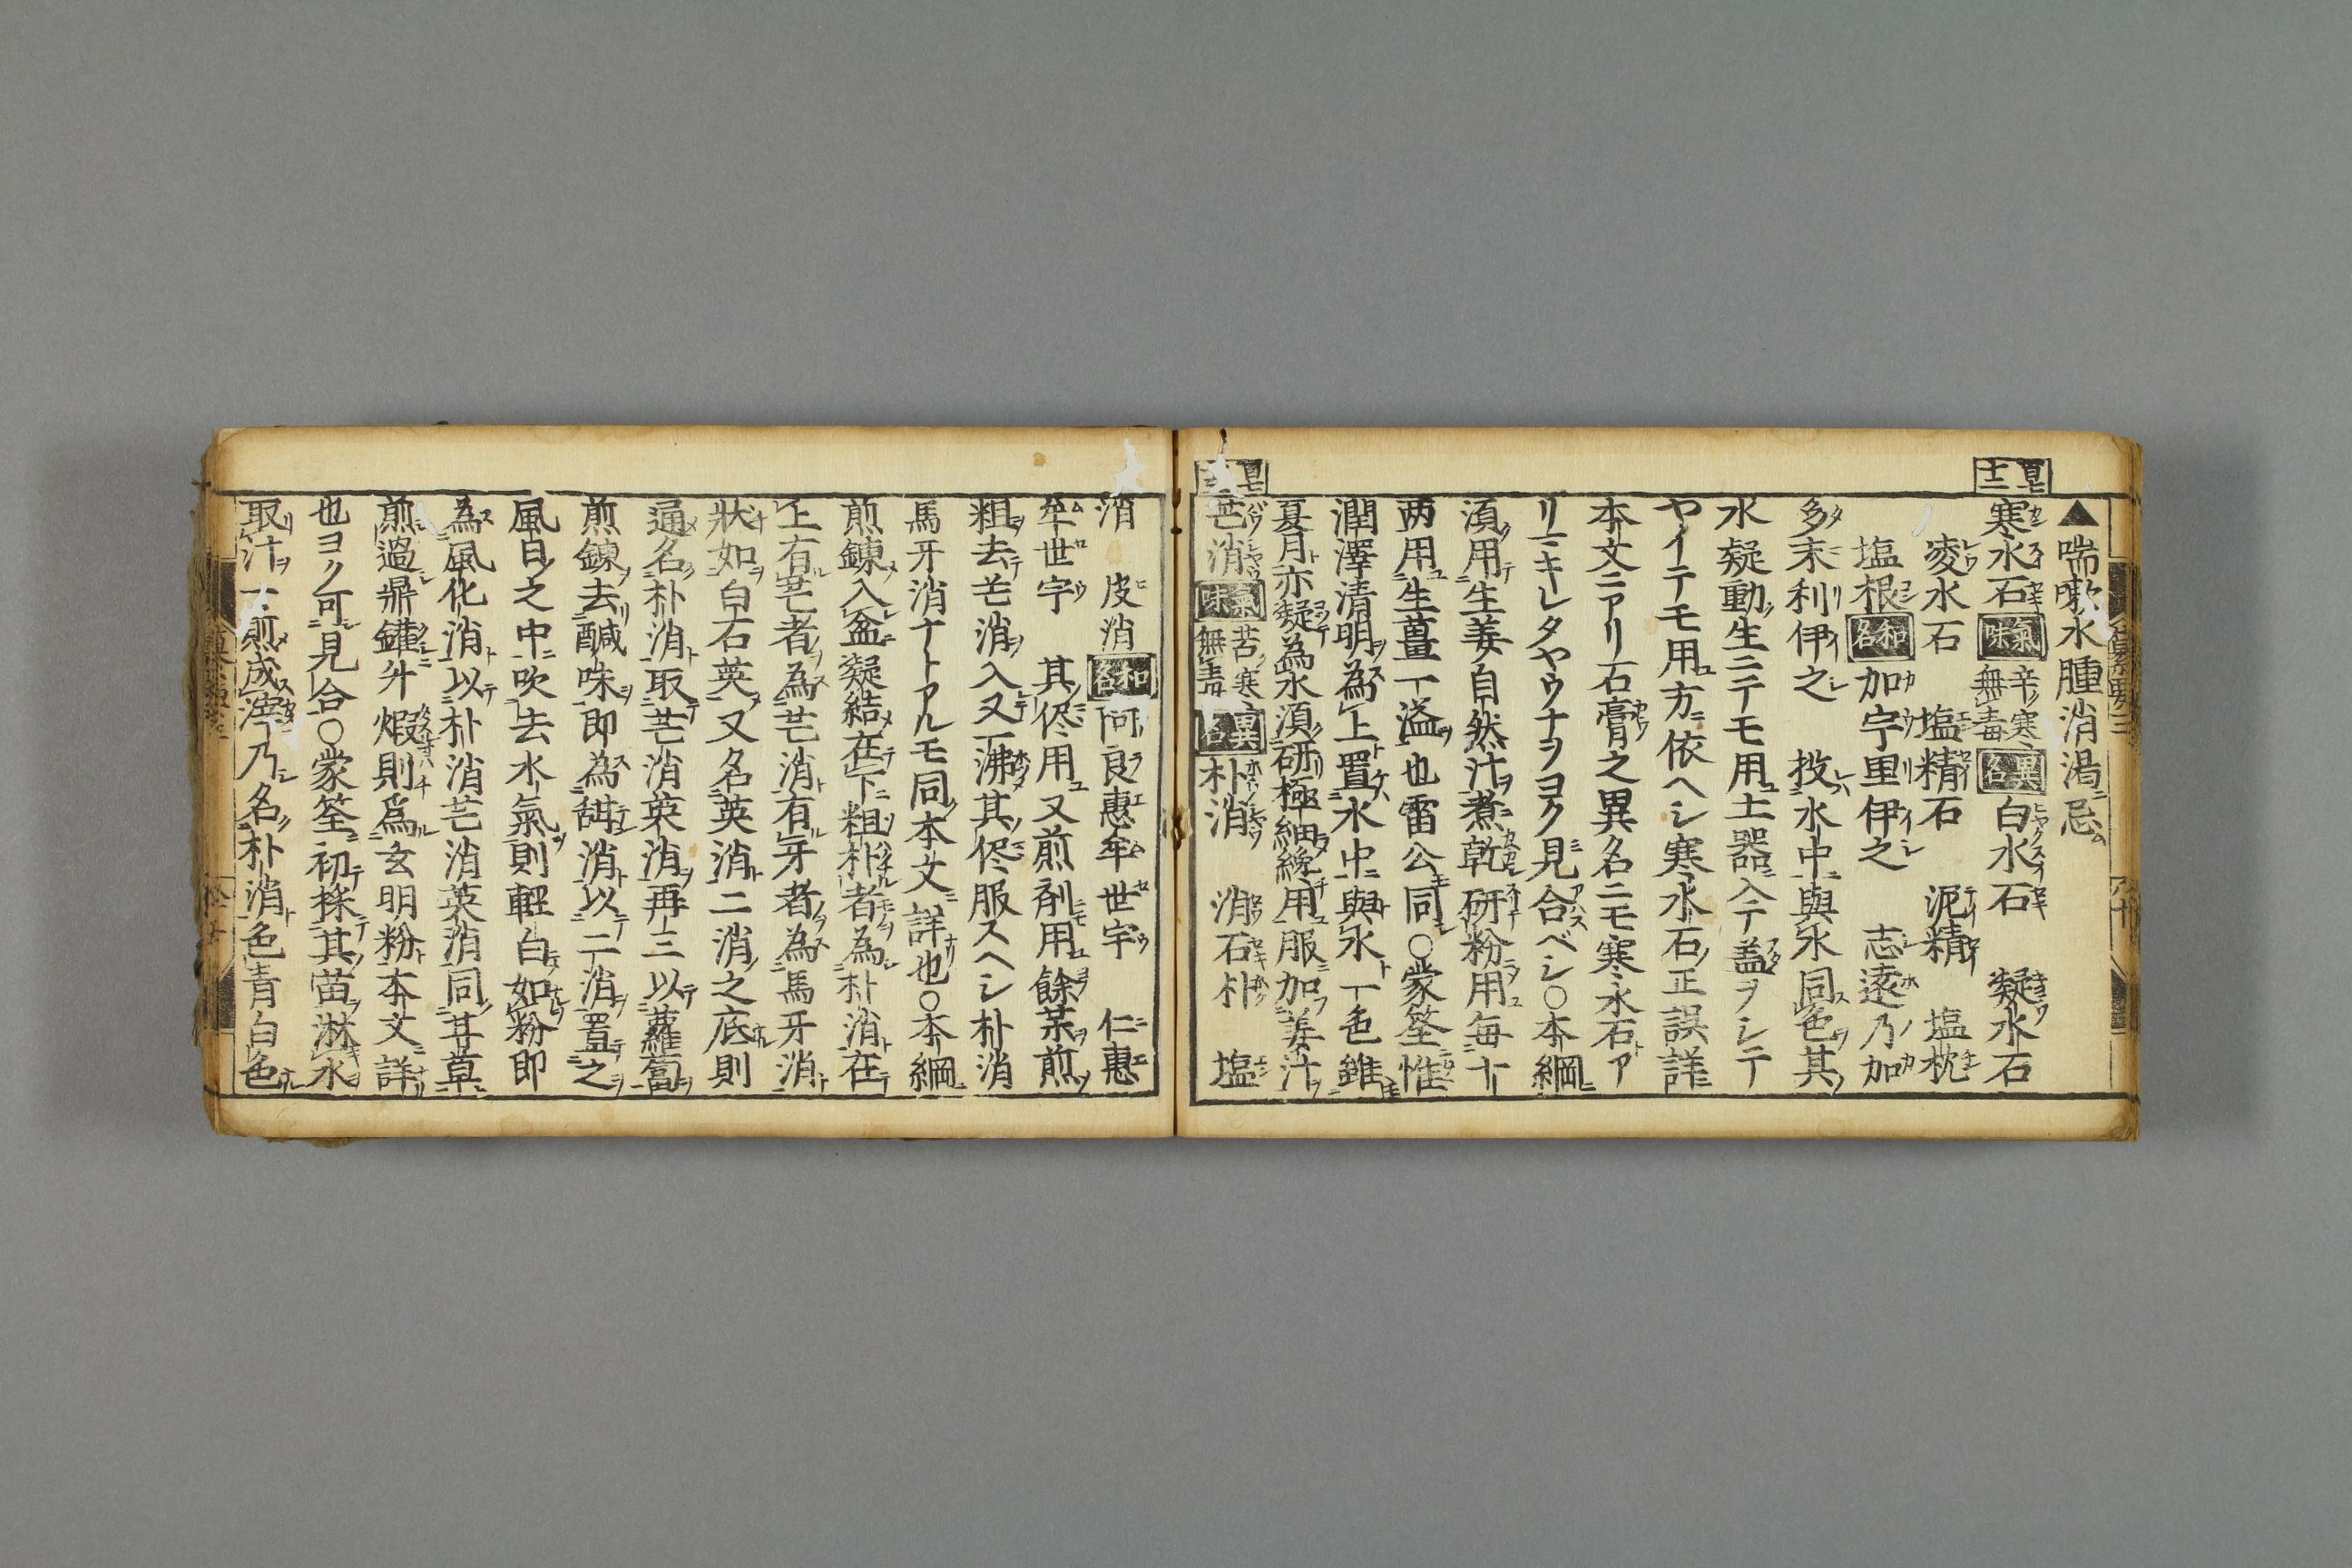 ▲喘嗽水腫消渇忌
寒水石 氣味 辛寒無毒 異名 白水石 凝水石
凌水石 塩精石 泥精 塩枕
塩根 和名 加宇里伊之 志遠乃加
多末利伊之 投水中與氷同色其
水凝動生ニテモ用土器ニ入テ蓋ヲシテ
ヤイテモ用方ニ依ヘシ寒水石正誤詳
本文ニアリ石膏之異名ニモ寒水石ア
リヨキレタヤウナヲヨク見合ベシ○本綱
須用生姜自然汁煮乾研粉用毎十
两用生薑一溢也雷公同○蒙筌惟
潤澤清明為上置水中與氷一色雖
夏月亦凝為氷須研極細纔用服加姜汁
芒消 氣味 苦寒無毒 異名 朴消 消石朴 塩
消 皮消 和名 阿良惠牟世宇 仁惠
牟世宇 其侭用又煎剤用餘薬煎
粗去芒消入又一沸其侭服スヘシ朴消
馬牙消ナトアルモ同本文詳也○本綱
煎錬入盆凝結在下粗朴者為朴消在
上有芒者為芒消有牙者為馬牙消
狀如白石英又名英消二消之底則
通名朴消取芒消英消再三以蘿蔔
煎錬去醎味即為甜消以二消置之
風日之中吹去水氣則輕白如粉即
為風化消以朴消芒消英消同甘草
煎過鼎鑵升煅則爲玄明粉本文詳
也ヨク可見合○蒙筌初採其苗淋水
取汁一煎成滓乃名朴消色青白色